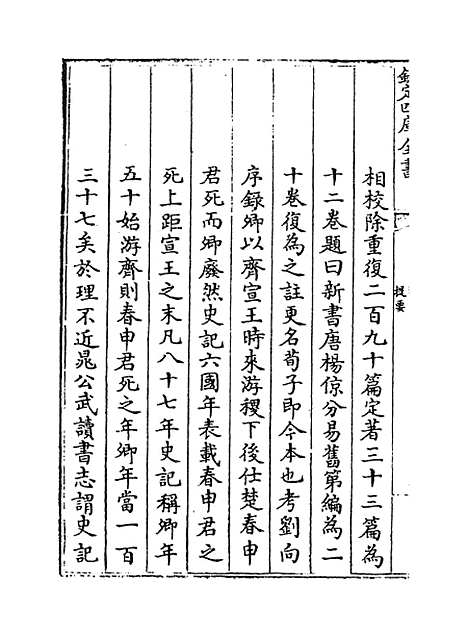 欽定四庫全書
提要
相校除重復二百九十篇定著三十三篇為
十二卷題曰新書唐楊倞分易舊第編為二
十卷復為之註更名荀子即今本也考劉向
序錄卿以齊宣王時來游稷下後仕楚春申
君死而卿廢然史記六國年表載春申君之
死上距宣王之末凡八十七年史記稱卿年
五十始游齊則春申君死之年卿年當一百
三十七矣於理不近晁公武讀書志謂史記